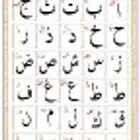 ا ب ت ث ج
ح خ د ذ ر
ز س ش ص ض
ط ظ ع غ ف
ق ك ل م ن